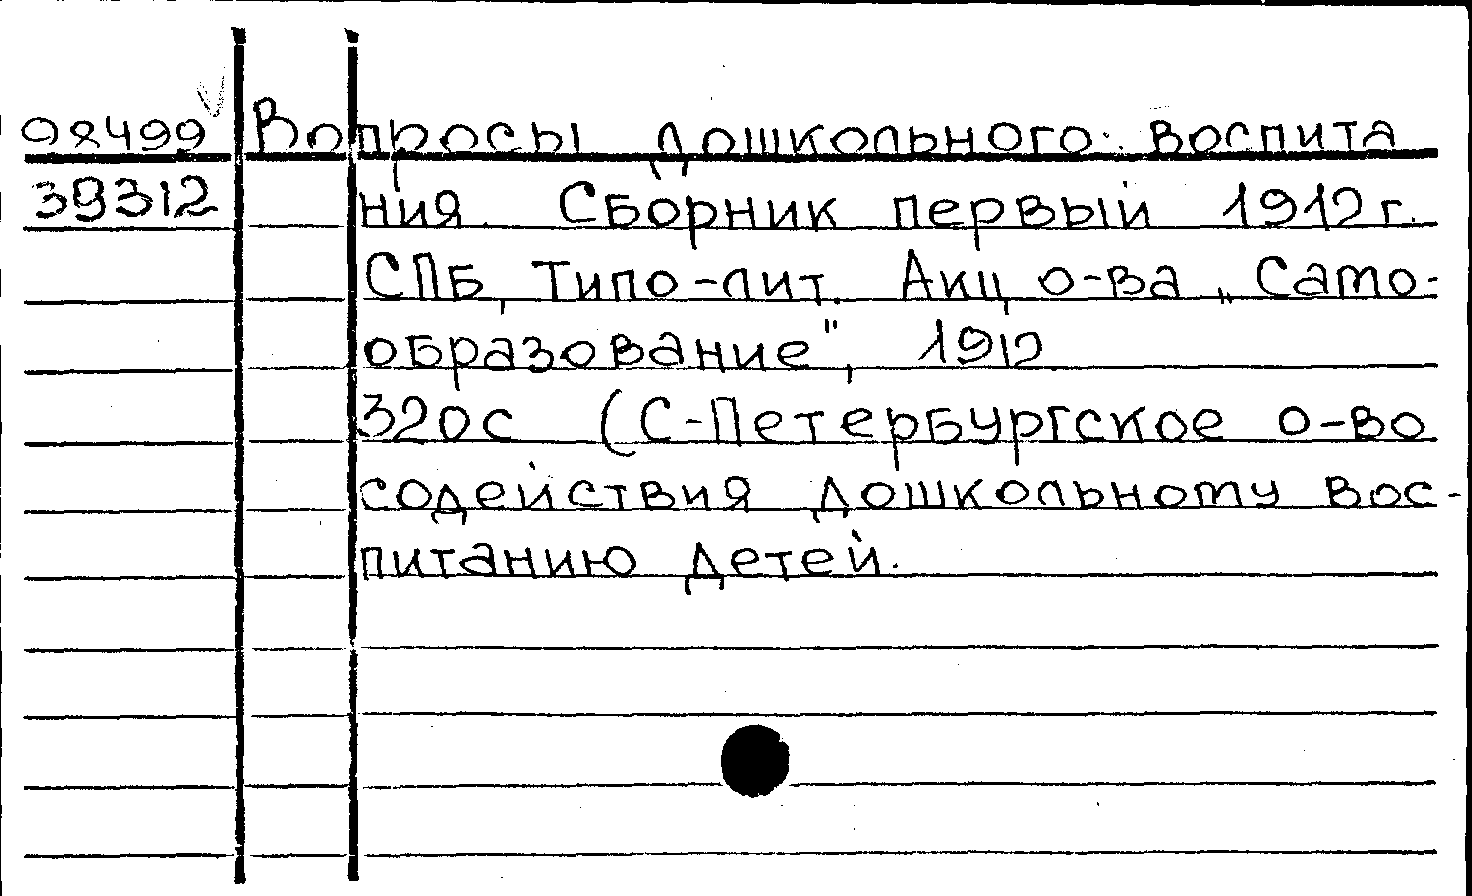 98499 Вопросы дошкольного воспита
39312 ния. Сборник первый 1912г.
СПБ, Типо-лит. Акц о-ва „Само-
образование", 1912
320с (С-Петербургское о-во
содействия дошкольному вос-
питанию детей.